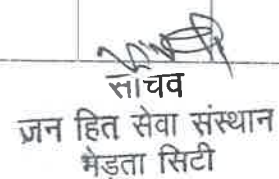 सचिव
जन हित सेवा संस्थान
मेड़ता सिटी